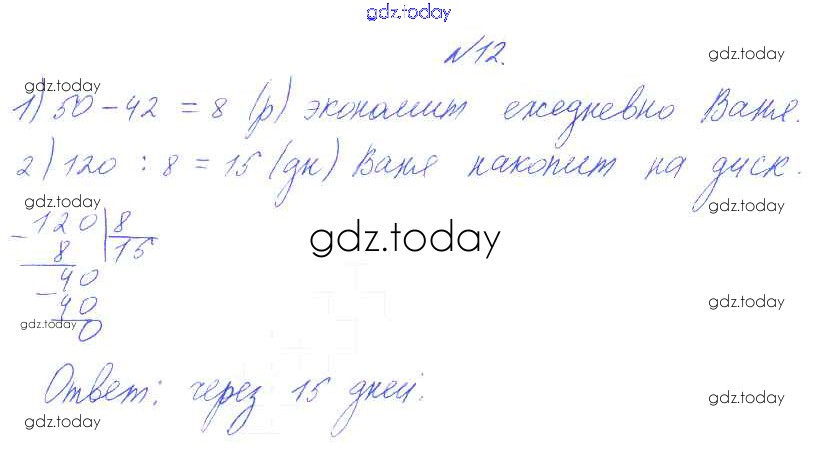 gdz.today
№12.
gdz.today
gdz.today
1) 50 - 42 = 8 (р) экономит ежедневно Ваня.
2) 120 : 8 = 15 (дн) Ваня накопит на диск.
gdz.today
gdz.today
- 120 | 8
8 | 15
gdz.today
- 40
40
gdz.today
gdz.today
0
Ответ: через 15 дней.
gdz.today
gdz.today